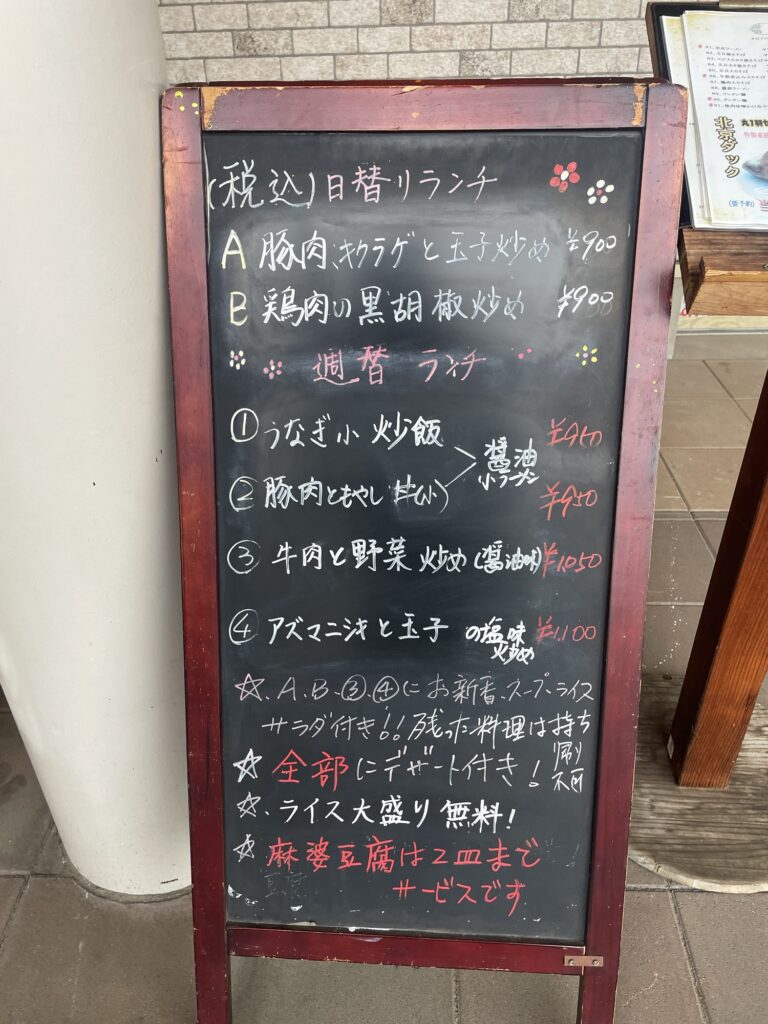 (税込)日替りランチ
A 豚肉、キクラゲと玉子炒め ¥900
B 鶏肉の黒胡椒炒め ¥900
週替ランチ
① うなぎ小炒飯 ¥950
醤油
小ラーメン
② 豚肉ともやし ¥950
③ 牛肉と野菜炒め(醤油味) ¥1,050
④ アズマニシキと玉子の塩味炒め ¥1,100
☆、A、B、③、④にお新香、スープ、ライス
サラダ付き!!残った料理は持ち帰り不可
☆ 全部にデザート付き!
☆、ライス大盛り無料!
☆ 麻婆豆腐は2皿まで
サービスです
北京ダック
(要予約)